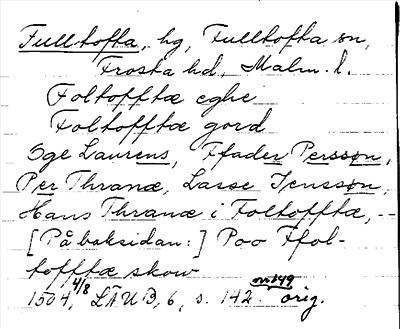 Fulltofta, hg, Fulltofta sn,
Frosta hd, Malm. l.
Foltofftæ eghe
Foltofftæ gord
Oge Laurens, Ffader Persson,
Per Thranæ, Lasse Jensson,
Hans Thranæ i Foltofftæ, --
[På baksidan:] Poo Ffol-
tofftæ skow
1504 4/8, LÄUB, 6, s. 142 orig.